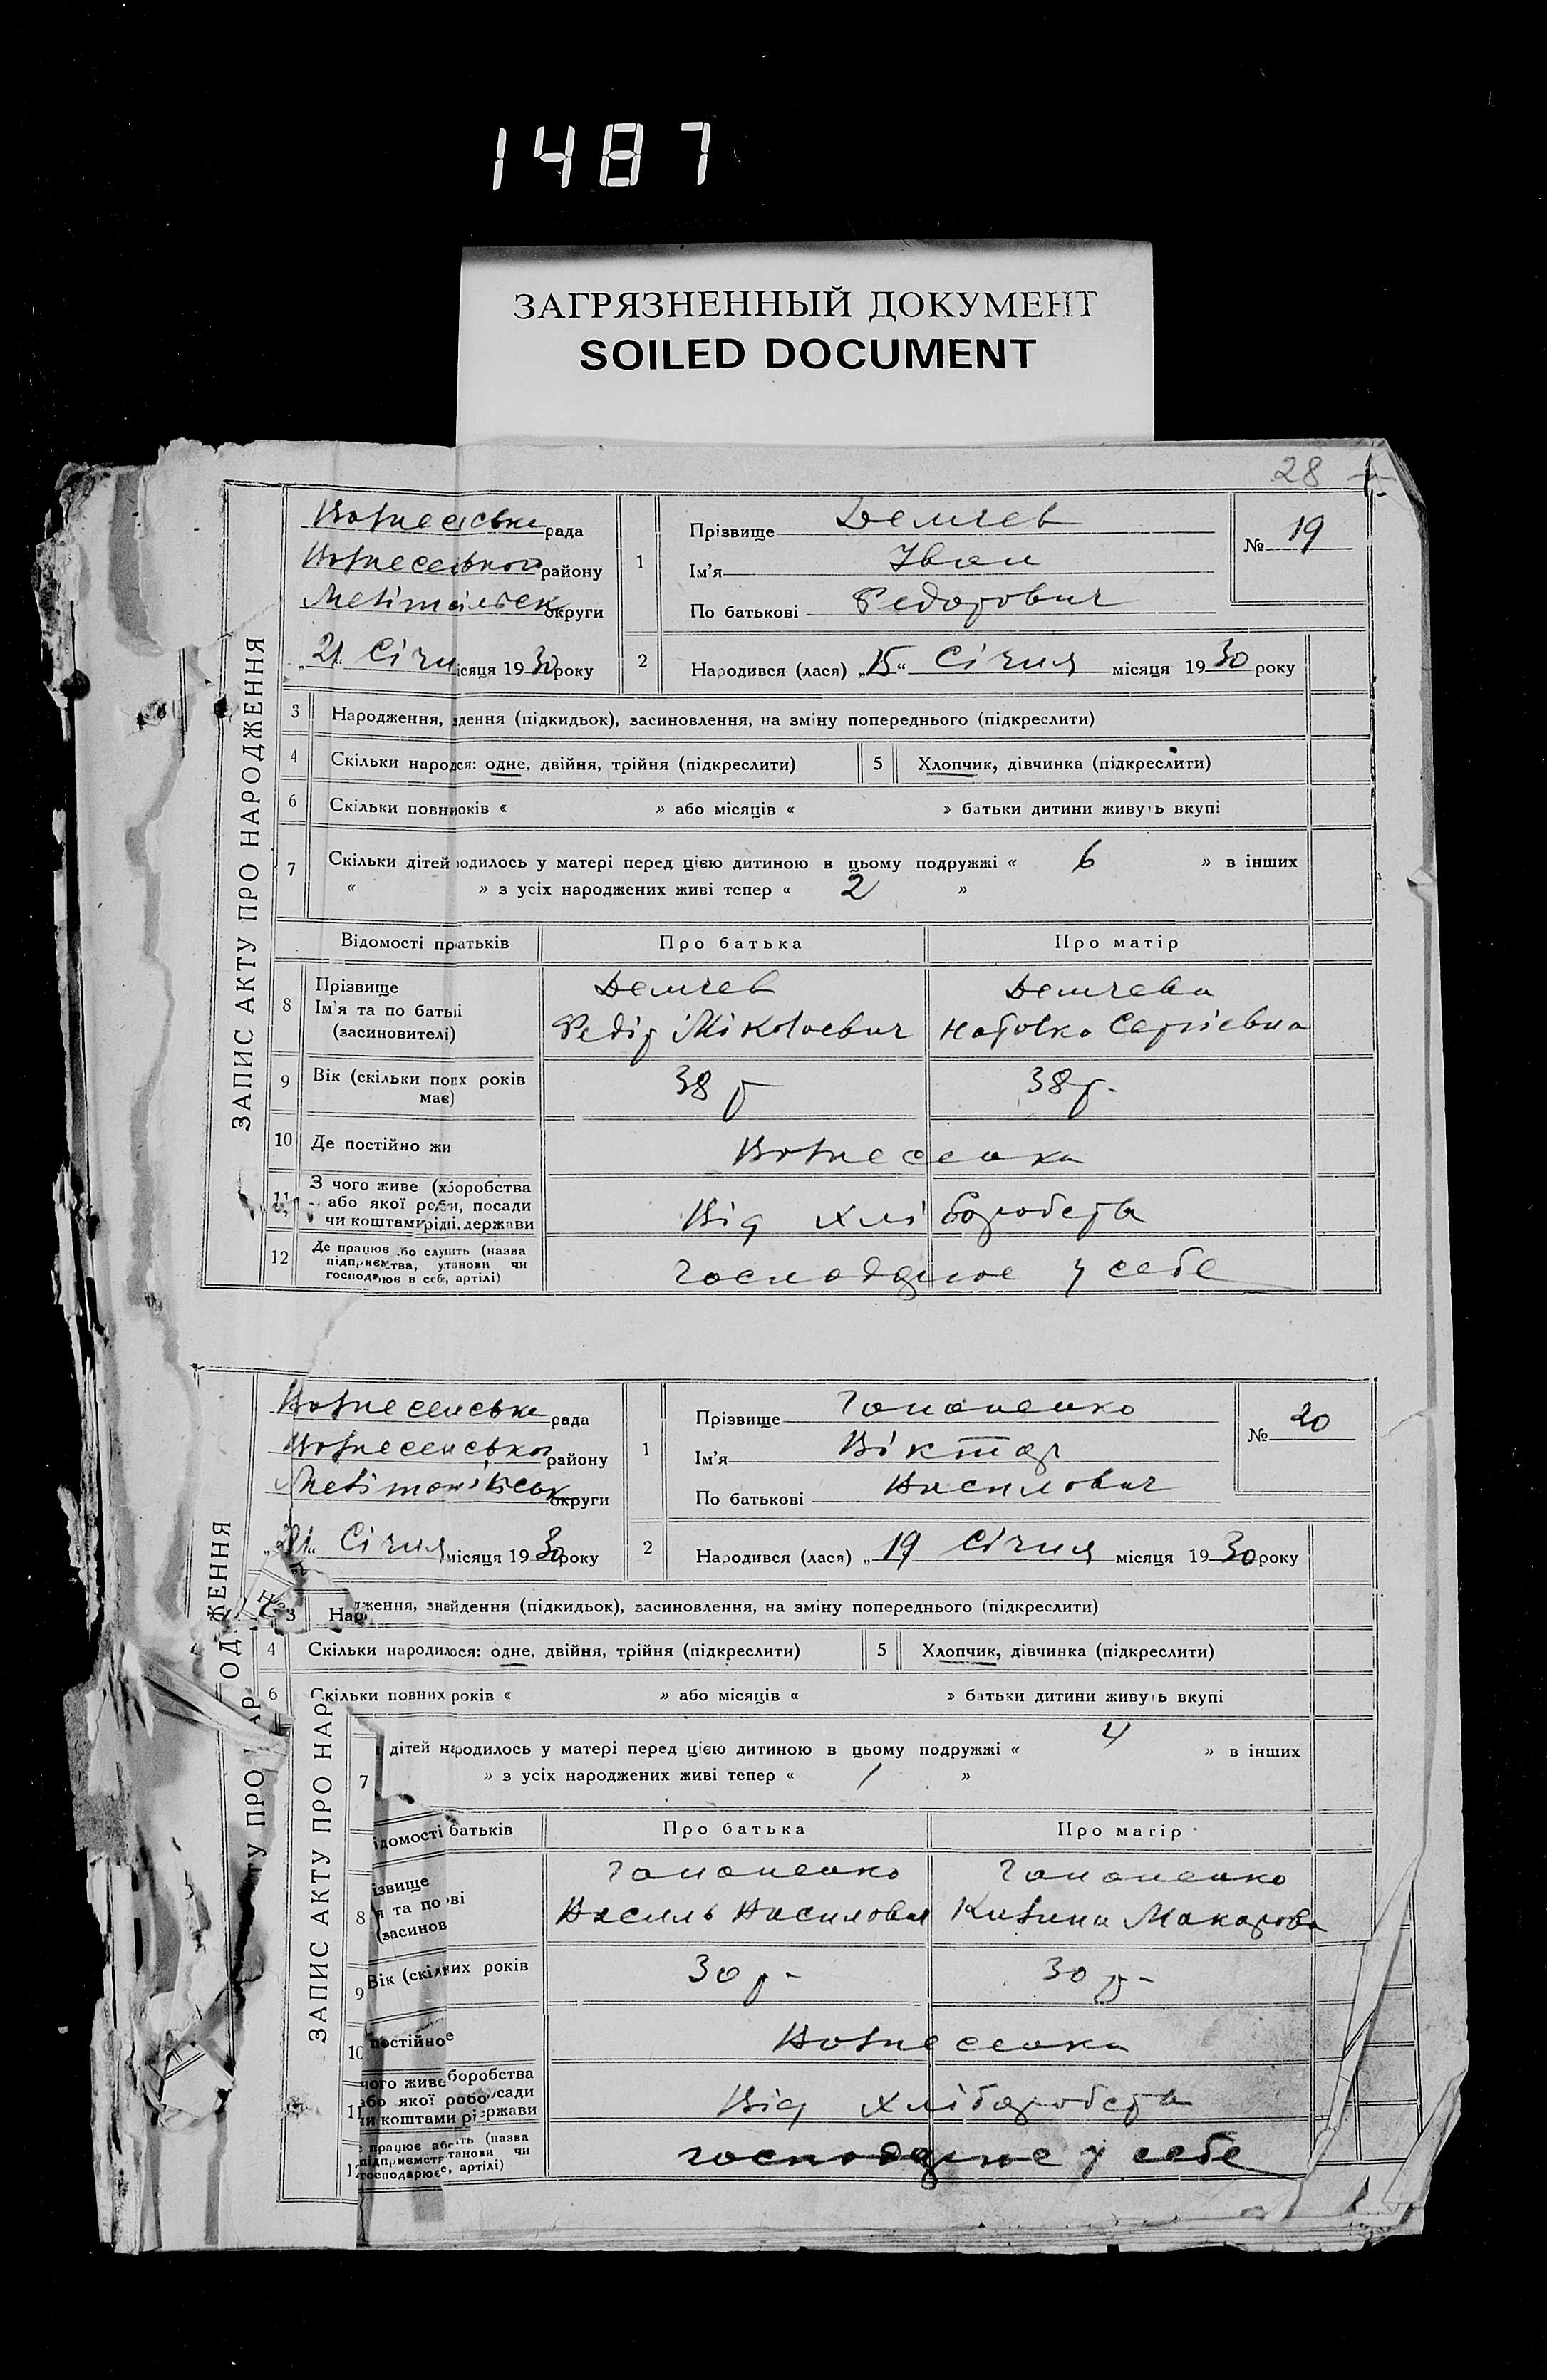 1487
ЗАГРЯЗНЕННЫЙ ДОКУМЕНТ
SOILED DOCUMENT
28
ЗАПИС АКТУ ПРО НАРОДЖЕННЯ
Вознесенська рада
Вознесенського району
округи
21 Січн ісяця 1930 року
1
Прізвище Демчев
Ім'я Іван
По батькові Федорович
№ 19
2
Народився (лася) „15“ Січня місяця 1930 року
3 Народження, здення (підкидьок), засиновлення, на зміну попереднього (підкреслити)
4 Скільки народся: одне, двійня, трійня (підкреслити)
5 Хлопчик, дівчинка (підкреслити)
6 Скільки повнюків « » або місяців « » батьки дитини живуть вкупі
7 Скільки дітей родилось у матері перед цією дитиною в цьому подружжі « 6 » в інших
« » з усіх народжених живі тепер « 2 »
Відомості пратьків Про батька Про матір
8 Прізвище Демчев Демчева
Ім'я та по баты Федір Міколаевич Наталка Сергіевна
(засновителі)
9 Вік (скільки повх років має) 38 р 38 р.
10 Де постійно жи Вознесенка
11 З чого живе (хоробства
або якої роби, посади
чи коштами ріді, держави
Від хліборобства
12 Де працює бо служить (назва
підприємства, установи чи
господарює в себе, артілі)
господарює у себе
ЖЕННЯ
Вознесенська рада
Вознесенського району
округи
„21“ Січня місяця 1930 року
1
Прізвище Гапоненко
Ім'я Віктор
По батькові Василович
№ 20
2
Народився (лася) „19 Січня місяця 1930 року
3 Нар дження, знайдення (підкидьок), засиновлення, на зміну попереднього (підкреслити)
4 Скільки народилося: одне, двійня, трійня (підкреслити)
5 Хлопчик, дівчинка (підкреслити)
6 Скільки повних років « » або місяців « » батьки дитини живуть вкупі
ЗАПИС АКТУ ПРО НАР
7 дітей народилось у матері перед цією дитиною в цьому подружжі « 4 » в інших
» з усіх народжених живі тепер « 1 »
ідомості батьків Про батька Про матір
8 ізвище Гапоненко Гапоненко
я та по ові Василь Василович Макарова
(засинов
9 Вік (скілних років 30 р- 30 р-
10 постійное Вознесенка
11 чого живе боробства
або якої робо сади
чи коштами рі ержави
Від хліборобства
12 працює аб ить (назва
підприємств танови чи
господарює е, артілі)
господарює у себе